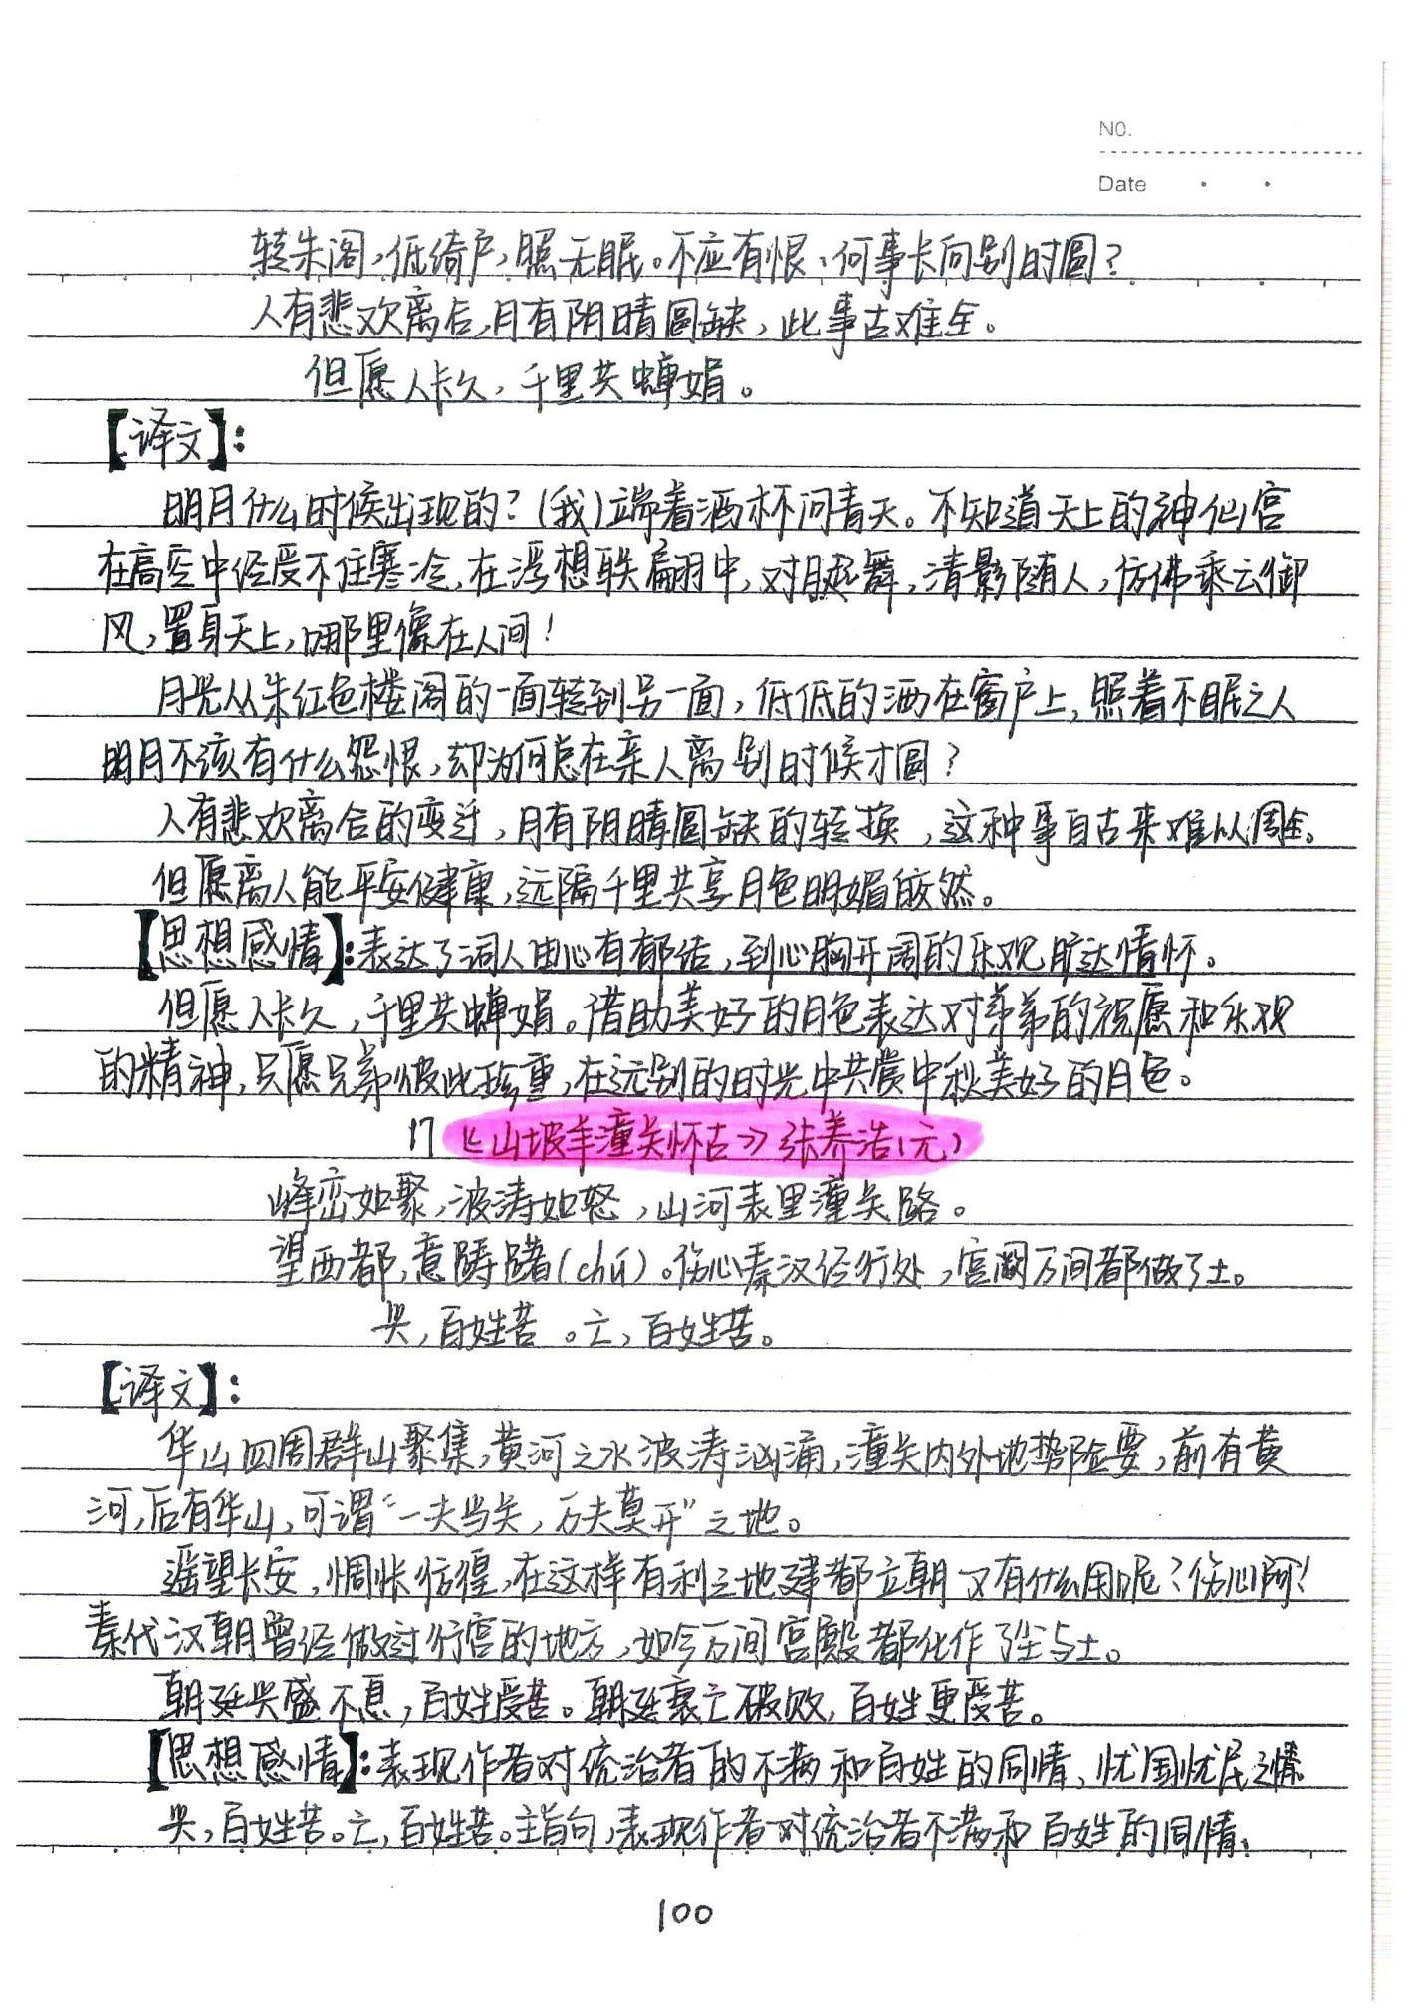 NO.
Date
转朱阁,低绮户,照无眠。不应有恨、何事长向别时圆?
人有悲欢离合,月有阴晴圆缺,此事古难全。
但愿人长久,千里共蝉娟。
【译文】:
明月什么时候出现的?(我)端着酒杯问青天。不知道天上的神仙宫
在高空中经受不住寒冷,在浮想联翩中,对月起舞,清影随人,仿佛乘云御
风,置身天上,哪里像在人间!
月光从朱红色楼阁的一面转到另一面,低低的洒在窗户上,照着不眠之人
明月不该有什么怨恨,却为何总在亲人离别时候才圆?
人有悲欢离合的变迁,月有阴晴圆缺的转换,这种事自古来难以周全。
但愿离人能平安健康,远隔千里共享月色明媚皎然。
【思想感情】:表达了词人由心有郁结,到心胸开阔的乐观旷达情怀。
但愿人长久,千里共蝉娟。借助美好的月色表达对弟弟的祝愿和乐观
的精神,只愿兄弟彼此珍重,在远别的时光中共赏中秋美好的月色。
17《山坡羊潼关怀古》张养浩(元)
峰峦如聚,波涛如怒,山河表里潼关路。
望西都,意踌躇(chú)。伤心秦汉经行处,宫阙万间都做了土。
兴,百姓苦。亡,百姓苦。
【译文】:
华山四周群山聚集,黄河之水波涛汹涌,潼关内外地势险要,前有黄
河,后有华山,可谓“一夫当关,万夫莫开”之地。
遥望长安,惆怅彷徨,在这样有利之地建都立朝又有什么用呢?伤心啊!
秦代汉朝曾经做过行宫的地方,如今万间宫殿都化作了尘与土。
朝廷兴盛不息,百姓受苦。朝廷衰亡破败,百姓更受苦。
【思想感情】:表现作者对统治者的不满和百姓的同情,忧国忧民之情。
兴,百姓苦。亡,百姓苦。主旨句,表现作者对统治者不满和百姓的同情。
100